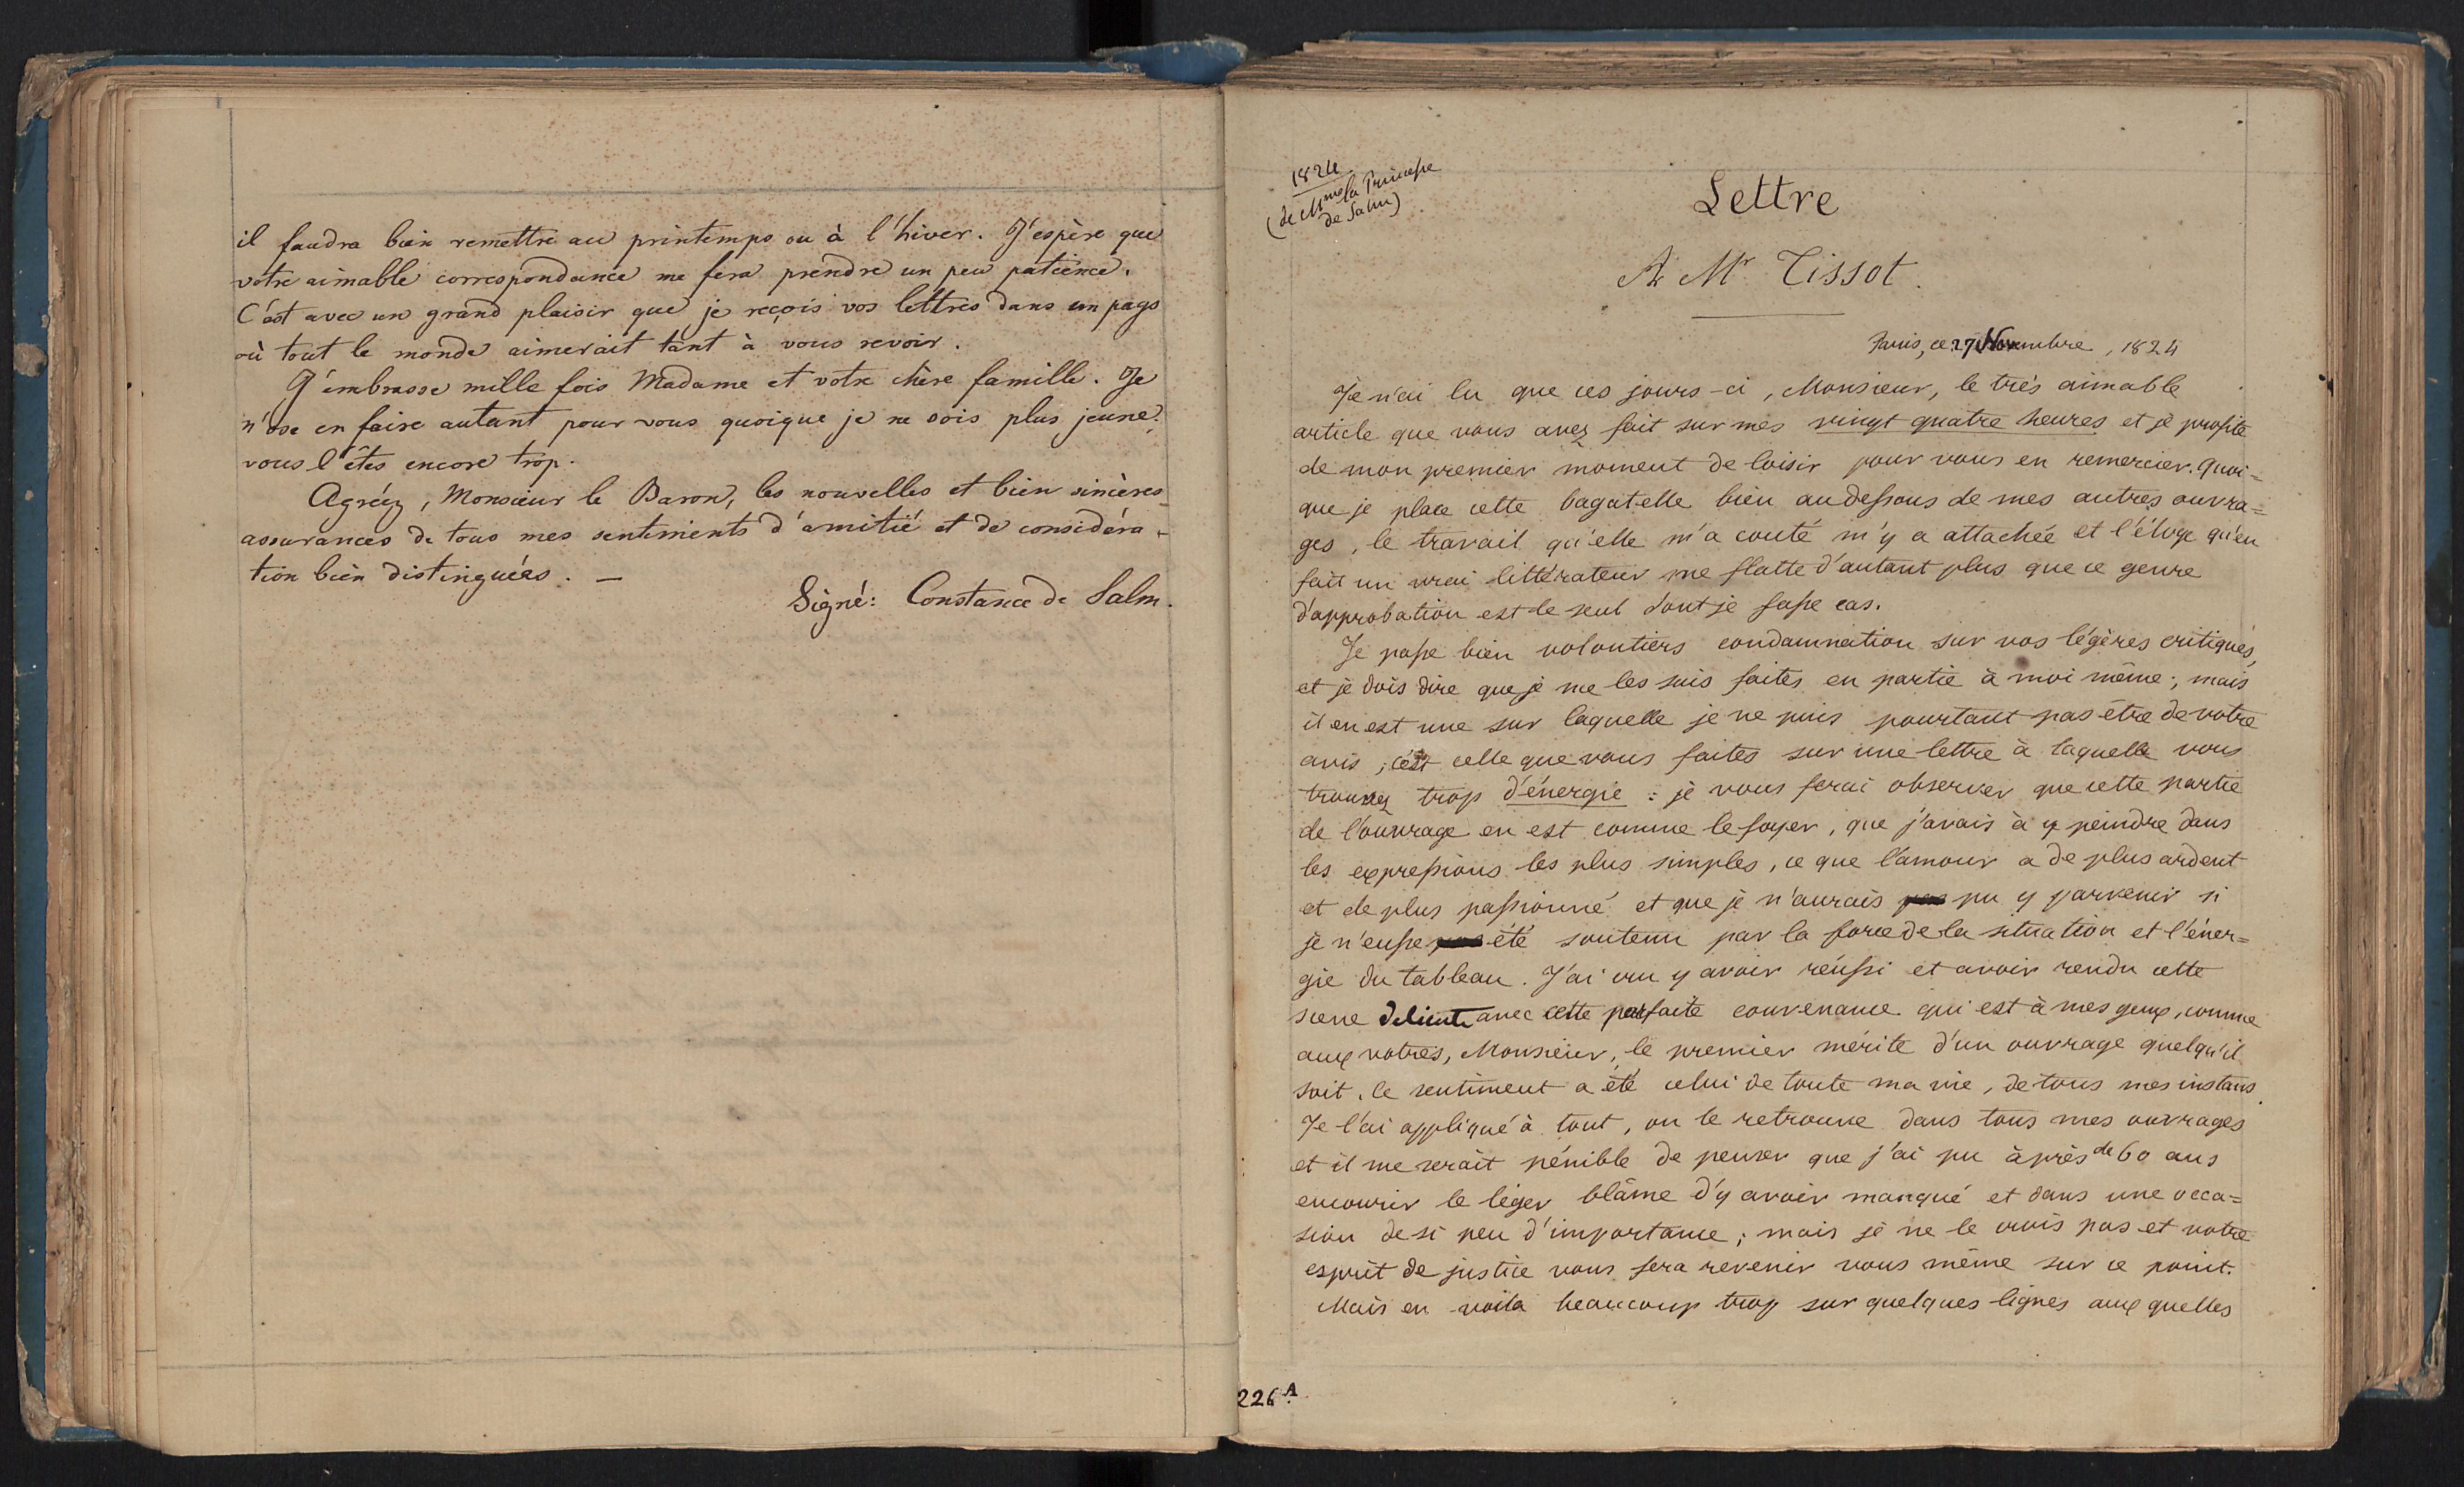 il faudra bien remettre au printemps ou à l'hiver. J'espère que
votre aimable correspondance me fera prendre un peu patience.
C'est avec un grand plaisir que je reçois vos lettres dans un pays
où tout le monde aimerait tant à vous revoir.
J'embrasse mille fois Madame et votre chère famille. Je
n'ose en faire autant pour vous quoique je ne sois plus jeune:
vous l'êtes encore trop.
Agréez, Monsieur le Baron, les nouvelles et bien sincères
assurances de tous mes sentiments d'amitié et de considéra-
tion bien distinguées. —
Signé: Constance de Salm.
1824
(de Mme la Princesse
de Salm)
Lettre
A Mr Tissot.
Paris, ce 27 Novembre, 1824
Je n'ai lu que ces jours-ci, Monsieur, le très aimable
article que vous avez fait sur mes vingt quatre heures et je profite
de mon premier moment de loisir pour vous en remercier. Quoi-
que je place cette bagatelle bien audessous de mes autres ouvra=
ges, le travail qu'elle m'a couté m'y a attachée et l'éloge qu'en
fait un vrai littérateur me flatte d'autant plus que ce genre
d'approbation est le seul dont je fasse cas.
Je passe bien volontiers condamnation sur vos légères critiques,
et je dois dire que je me les suis faites en partie à moi même; mais
il en est une sur laquelle je ne puis pourtant pas être de votre
avis, c'est celle que vous faites sur une lettre à laquelle vous
trouvez trop d'énergie: je vous ferai observer que cette partie
de l'ouvrage en est comme le foyer, que j'avais à y peindre dans
les expressions les plus simples, ce que l'amour a de plus ardent
et de plus passionné et que je n'aurais pas pu y parvenir si
je n'eusse pas été soutenu par la force de la situation et l'éner=
gie du tableau. J'ai cru y avoir réussi et avoir rendu cette
scene delicate avec cette parfaite convenance qui est à mes yeux, comme
aux votres, Monsieur, le premier mérite d'un ouvrage quelqu'il
soit. Ce sentiment a été celui de toute ma vie, de tous mes instans.
Je l'ai appliqué à tout, on le retrouve dans tous mes ouvrages
et il me serait pénible de penser que j'ai pu àprès de 60 ans
encourir le léger blâme d'y avoir manqué et dans une occa=
sion de si peu d'importance; mais je ne le crois pas et votre
esprit de justice vous fera revenir vous même sur ce point.
Mais en voila beaucoup trop sur quelques lignes aux quelles
226 A.